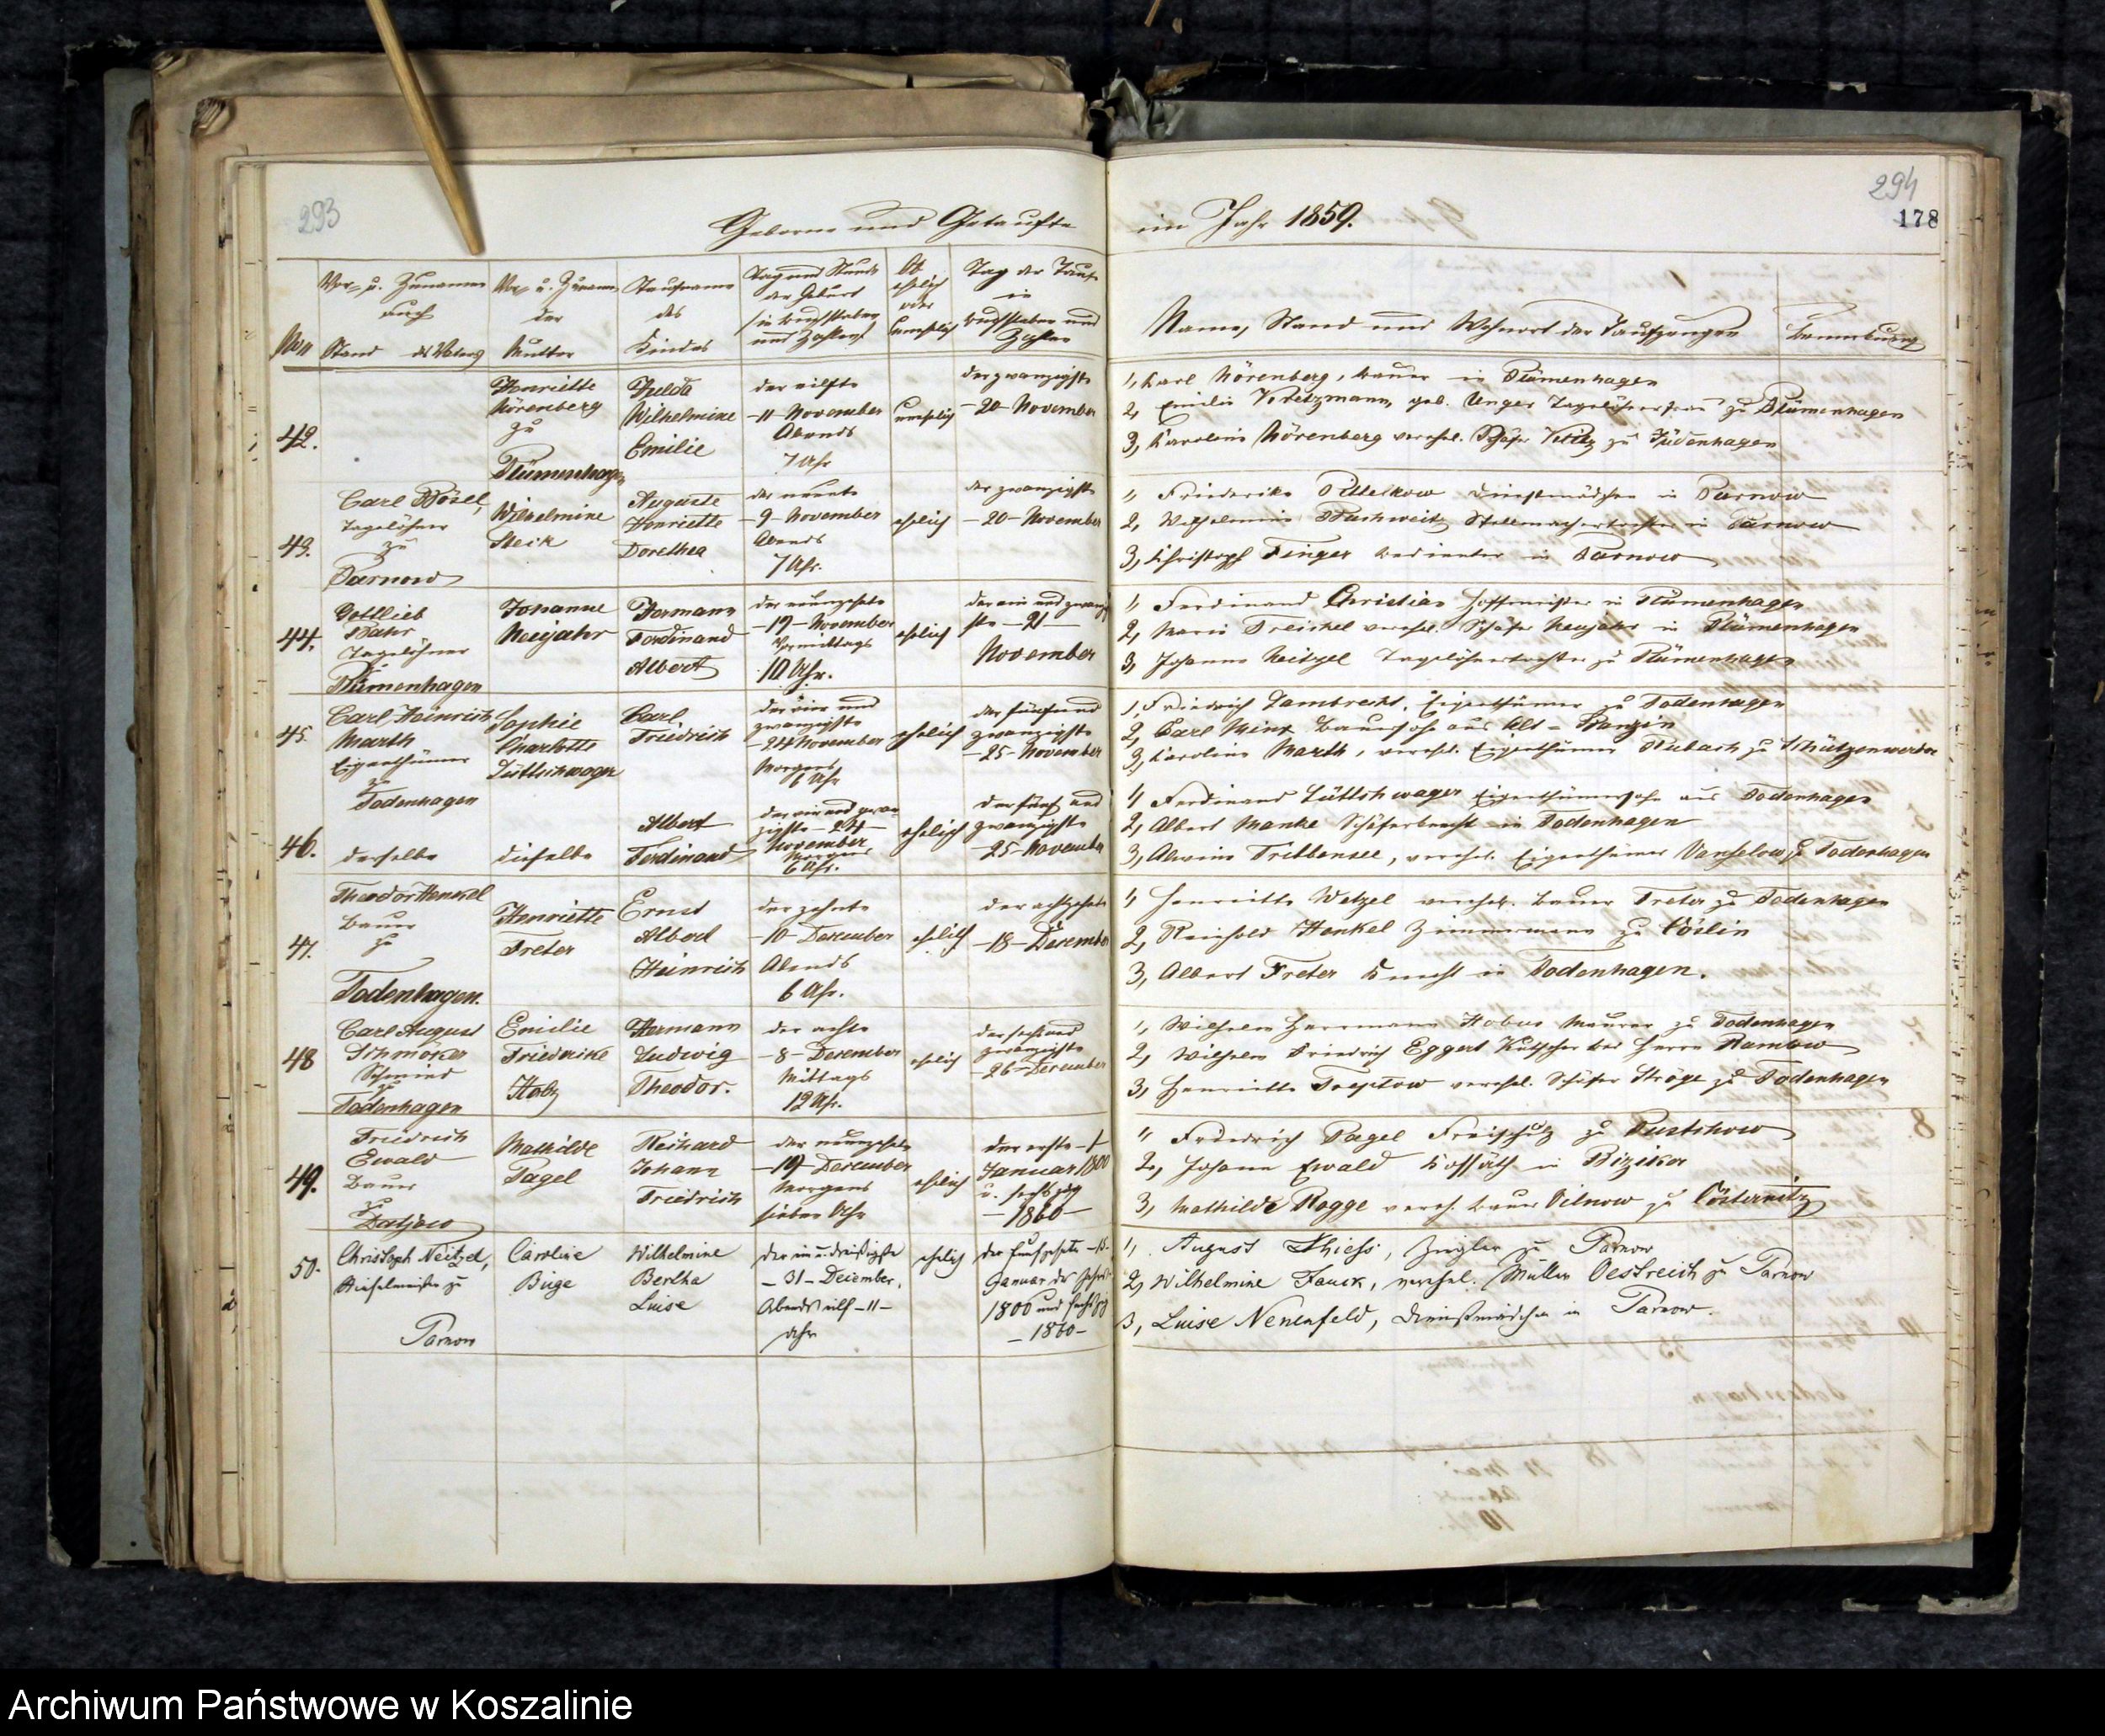 293
Geborne und Getaufte
Nro
Vor- u. Zunamen
auch
Stand des Vaters
Vor- u. Zunamen
der
Mutter
Taufname
des
Kindes
Tag und Stunde
der Geburt
(in Buchstaben
und Zahlen)
Ob
ehelich
oder
unehelich
Tag der Taufe
in
Buchstaben und
Zahlen
42.
Henriette
Nörenberg
zu
Plümenhagen
Hulda
Wilhelmine
Emilie
der eilfte
-11- November
Abends
7 Uhr
unehelich
der zwanzigste
-20- November
43.
Carl Bösel,
Tagelöhner
zu
Parnow
Wilhelmine
Steik
Auguste
Henriette
Dorethea
der neunte
-9- November
Abends
7 Uhr.
ehelich
der zwanzigste
-20- November
44.
Gottlieb
Bahr
Tagelöhner
Plümenhagen
Johanne
Neujahr
Hermann
Ferdinand
Albert
der neunzehnte
-19- November
Vormittags
10 Uhr.
ehelich
der ein und zwanzig
ste -21-
November
45.
Carl Heinrich
Marth
Eigenthümer
zu
Todenhagen
Sophie
Charlotte
Lüttschwager
Carl
Friedrich
der vier und
zwanzigste
-24 November
Morgens
6 Uhr
ehelich
der fünf und
zwanzigste
-25- November
46.
derselbe
dieselbe
Albert
Ferdinand
der vier und zwan
zigste -24-
November
Morgens
6 Uhr.
ehelich
der fünf und
zwanzigste
-25- November
47.
Theodor Henkel
Bauer
zu
Todenhagen.
Henriette
Freter
Ernst
Albert
Heinrich
der zehnte
-10- December
Abends
6 Uhr.
ehelich
der achtzehnte
-18- December
48
Carl August
Schmöker
Schmied
zu
Todenhagen
Emilie
Friedricke
Holtz
Hermann
Ludwig
Theodor.
der achte
-8- December
Mittags
12 Uhr.
ehelich
der sechs und
zwanzigste
-26- December
49.
Friedrich
Ewald
Bauer
zu
Datjow
Mathilde
Pagel
Reihard
Johann
Friedrich
der neunzehnte
-19- December
Morgens
sieben Uhr
ehelich
der erste -1-
Januar 1800
u. sechszig
-1860-
50.
Christoph Neitzel,
zu
Parnow
Caroline
Büge
Wilhelmine
Bertha
Luise
der ein u. dreißigste
-31- December,
Abends eilf -11-
Uhr
ehelich
der fünfzehnte -15-
Januar des Jahres
1800 und sechszig
-1860-
294
178
im Jahr 1859.
Name, Stand und Wohnort der Taufzeugen
Bemerkung
1, Karl Nörenberg, Bauer in Plümenhagen
2, Emilie geb. Unger Tagelöhnerfrau zu Plümenhagen
3, Karoline Nörenberg verehel. Schäfer zu Jüdenhagen
1, Friederike Pittelkow Dienstmädchen in Parnow
2, Wilhelmine Buchweitz Stellmachertochter in Parnow
3, Christoph Finger Bedienter in Parnow
1, Ferdinand Christian Hofmeister in Plümenhagen
2, Marie Treichel verehel. Schäfer Neujahr in Plümenhagen
3, Johanne Neitzel Tagelöhnertochter zu Plümenhagen
1, Friedrich Lambrecht, Eigenthümer zu Todenhagen
2, Carl Bauersohn aus Alt-Banzin
3, Karoline Marth, verehel. Eigenthümer Rubach zu Schützenwerder
1, Ferdinand Lüttschwager Eigenthümersohn aus Todenhagen
2, Albert Manke Schäferknecht in Todenhagen
3, Alwine Tribbensee, verehel. Eigenthümer Vanselow zu Todenhagen
1, Henriette Wetzel verehel. Bauer Freter zu Todenhagen
2, Reinhold Henkel Zimmermann zu Cöslin
3, Albert Freter Knecht in Todenhagen.
1, Wilhelm Herrmann Hobus Maurer zu Todenhagen
2, Wilhelm Friedrich Eggert Kutscher bei Herrn Rambow
3, Henriette Treptow verehel. Schäfer Ströge zu Todenhagen
1, Friedrich Pagel Freischulz zu Pustchow
2, Johann Ewald Kossäth in Biziker
3, Mathilde Rogge vereh. Bauer Vilnow zu Cösternitz
1, August Thiess, Ziegler zu Parnow
2, Wilhelmine Fauck, verehel. Müller Oestreich zu Parnow
3, Luise Nenenfeld, Dienstmädchen in Parnow.
Archiwum Państwowe w Koszalinie